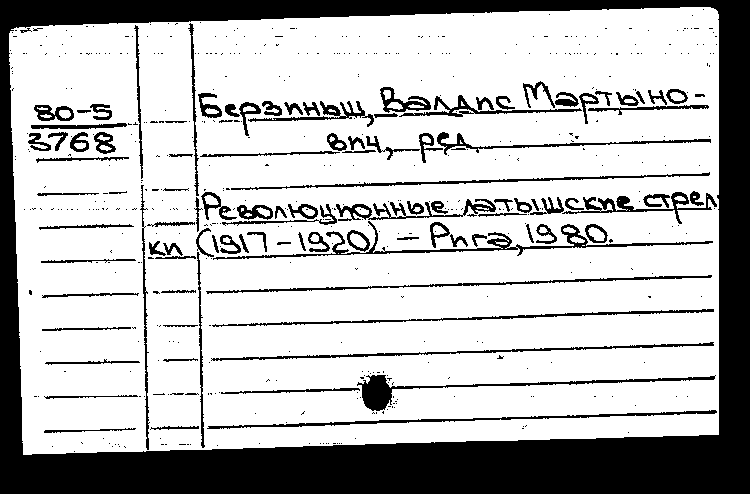 80-5
3768
Берзиньш, Валдис Мартыно-
вич, ред.
Революционные латышские стрел
ки (1917-1920). - Рига, 1980.